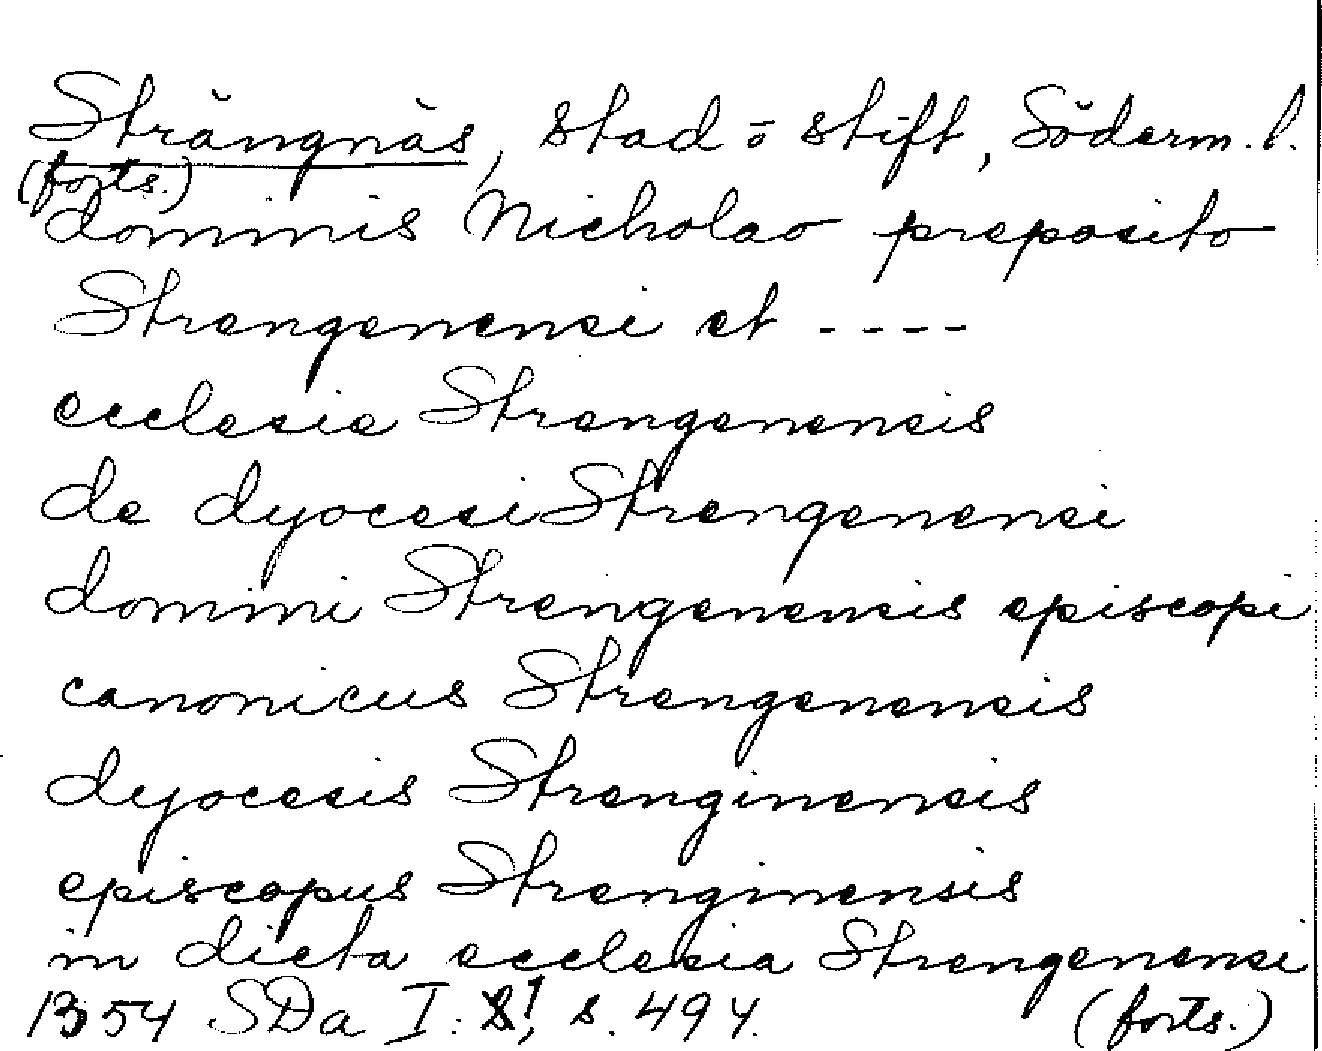 Strängnäs, stad o stift, Söderm. l.
(forts.)
dominis Nicholao preposito
Strengenensi et ----
ecclesie Strengenensis
de dyocesi Strengenensi
domini Strengenensis episcopi
canonicus Strengenensis
dyocesis Strenginensis
episcopus Strenginensis
in dicta ecclesia Strengenensi
1354 SDa I: s. 494. (forts.)